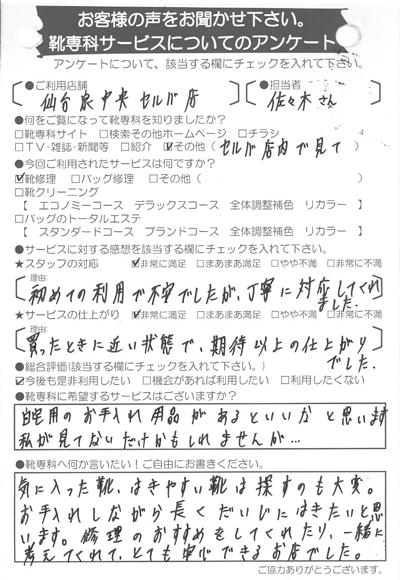 お客様の声をお聞かせ下さい。
靴専科サービスについてのアンケート
アンケートについて、該当する欄にチェックを入れて下さい。
●ご利用店舗 ●担当者
仙台泉中央 セルバ店 佐々木さん
●何をご覧になって靴専科を知りましたか?
□靴専科サイト □検索その他ホームページ □チラシ
□TV・雑誌・新聞等 □紹介 ☑その他( セルバ店内で見て )
●今回ご利用されたサービスは何ですか?
☑靴修理 □バッグ修理 □その他( )
□靴クリーニング
【 エコノミーコース デラックスコース 全体調整補色 リカラー 】
□バッグのトータルエステ
【 スタンダードコース ブランドコース 全体調整補色 リカラー 】
●サービスに対する感想を該当する欄にチェックを入れて下さい。
★スタッフの対応 ☑非常に満足 □まあまあ満足 □やや不満 □非常に不満
理由:
初めての利用で不安でしたが、丁寧に対応してくれ
ました。
★サービスの仕上がり ☑非常に満足 □まあまあ満足 □やや不満 □非常に不満
理由:
買ったときに近い状態で、期待以上の仕上がり
でした.
●総合評価(該当する欄にチェックを入れて下さい。)
☑今後も是非利用したい □機会があれば利用したい □利用したくない
●靴専科に希望するサービスはございますか?
自宅用のお手入れ用品があるといいなと思います
私が見てないだけかもしれませんが…
●靴専科へ何か言いたい!ご自由にお書きください。
気に入った靴、はきやすい靴は探すのも大変。
お手入れしながら長くだいじにはきたいと思
います。修理のおすすめをしてくれたり、一緒に
考えてくれて、とても安心できるお店でした。
ご協力ありがとうございます。